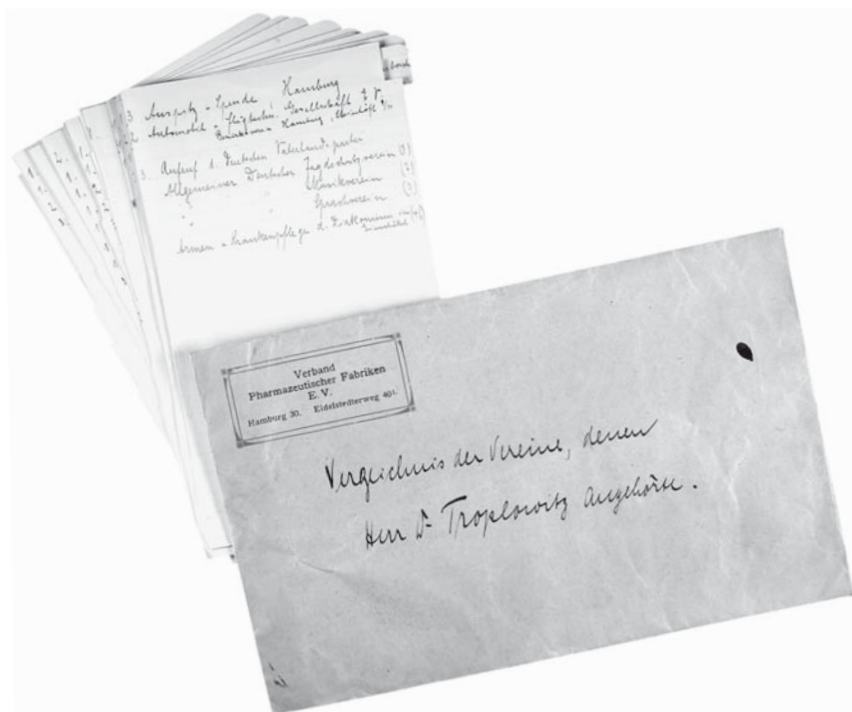 3 Auspitz-Spende Hamburg
2 Automobil- Flugtechn. Gesellschaft
Hamburg,
3. Aufruf d. Deutschen Vaterlandspartei
Allgemeiner Deutscher Jagdschutzverein (1)
" " Musikverein (2)
" " Sprachverein (3)
Armen- u Krankenpflege d.
Verband
Pharmazeutischer Fabriken
E. V.
Hamburg 30. Eidelstedterweg 401.
Verzeichnis der Vereine, denen
Herr Dr. Troplowitz angehörte.